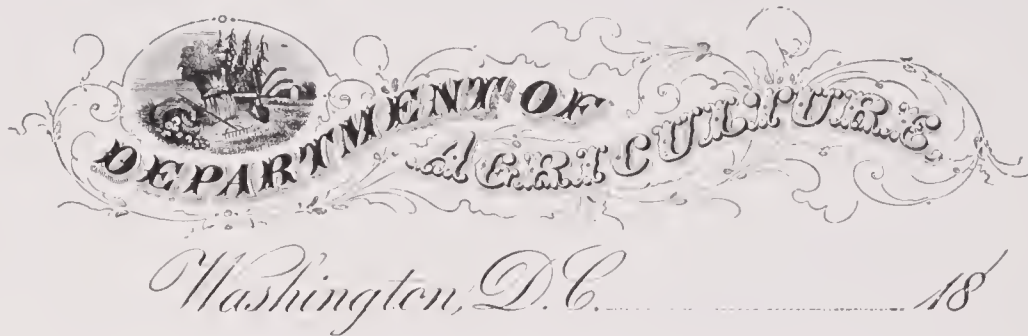 DEPARTMENT OF
AGRICULTURE.
Washington, D.C. .................... 18